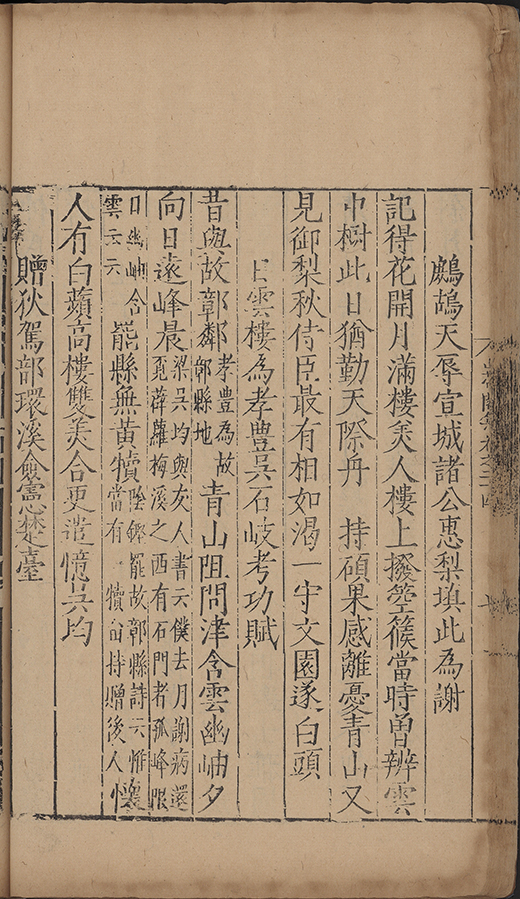 鷓鴣天辱宣城諸公惠梨填此為謝
記得花開月滿樓美人樓上撥箜篌當時曾辨雲
中樹此日猶勤天際舟　持碩果感離憂青山又
見御梨秋侍臣最有相如渴一守文園遂白頭
白雲樓為孝豊吳石岐考功賦
昔與故鄣鄰孝豊為故鄣縣地青山阻問津含雲幽岫夕
向日遠峰晨梁吳均與友人書云僕去月謝病還覔薜蘿梅溪之西有石門者孤峰限
日幽岫含雲云云罷縣無黃犢陰鏗罷故鄣縣詩云惟當有一犢留持贈後人懷
人有白蘋高樓雙美合更遣憶吳均
贈狄駕部環溪僉憲楚臺